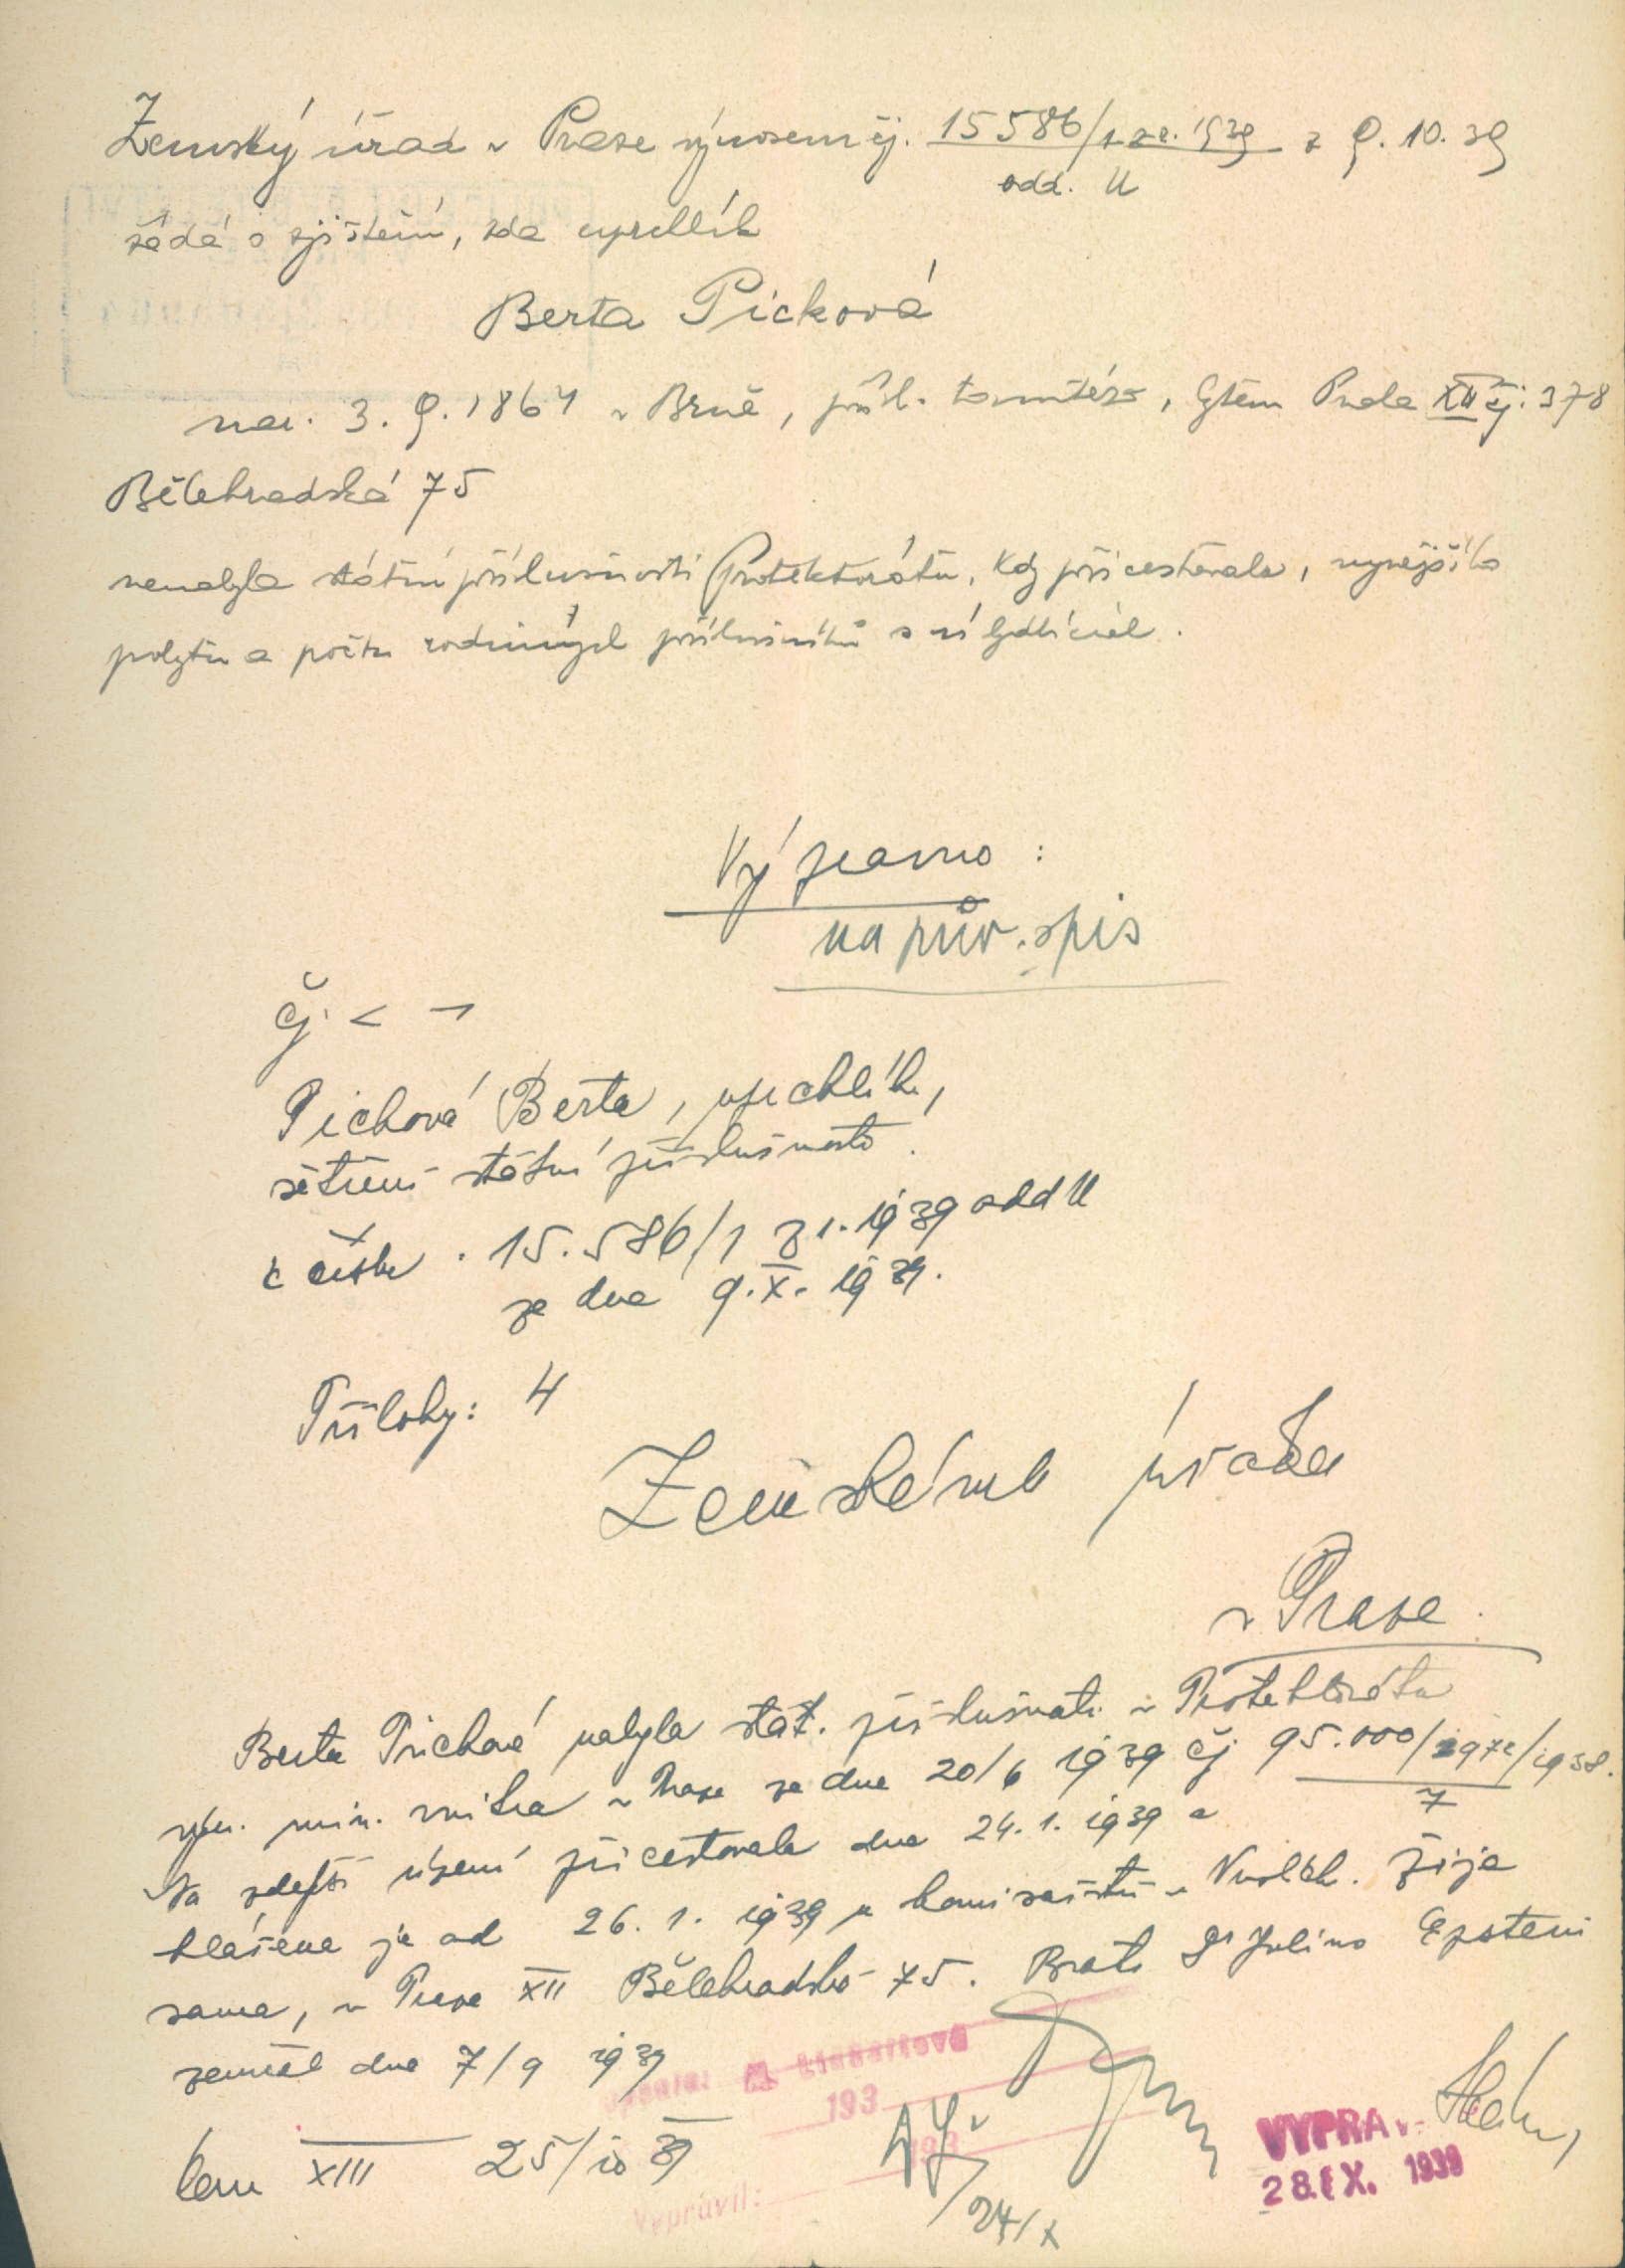 Zemský úřad v Praze výnosem čj. 15586/1 z r. 1939 z 9. 10. 39
odd. U
žádá o zjištění, zda uprchlík
Berta Picková
nar. 3. 9. 1864 v Brně, přísl. tamtéž, bytem Praha XII čj. 378
Bělehradská 75
nenabyla státní příslušnosti Protektorátu, kdy přicestovala, nynějšího
pobytu a počtu rodinných příslušníků s ní bydlících.
Výpravno:
na pův. spis
čj.
Picková Berta, uprchlík,
šetření státní příslušnosti.
K číslu 15.586/1 z r. 1939 odd U
ze dne 9.X. 1939.
Přílohy: 4
Zemskému úřadu
v Praze.
Berta Picková nabyla stát. příslušnosti v Protektorátu
výn. min. vnitra v Praze ze dne 20/6 1939 čj 95.000/1938.
7
Na zdejší území přicestovala dne 24.1. 1939 a
hlášena je od 26.1. 1939 u komisařství v Nuslích. Žije
sama, v Praze XII Bělehradská 75. Bratr Dr Julius Epstein
zemřel dne 7/9 1939
kom XIII 25/10 39
193
Vypravil:
24/X
VYPRA
28. X. 1939